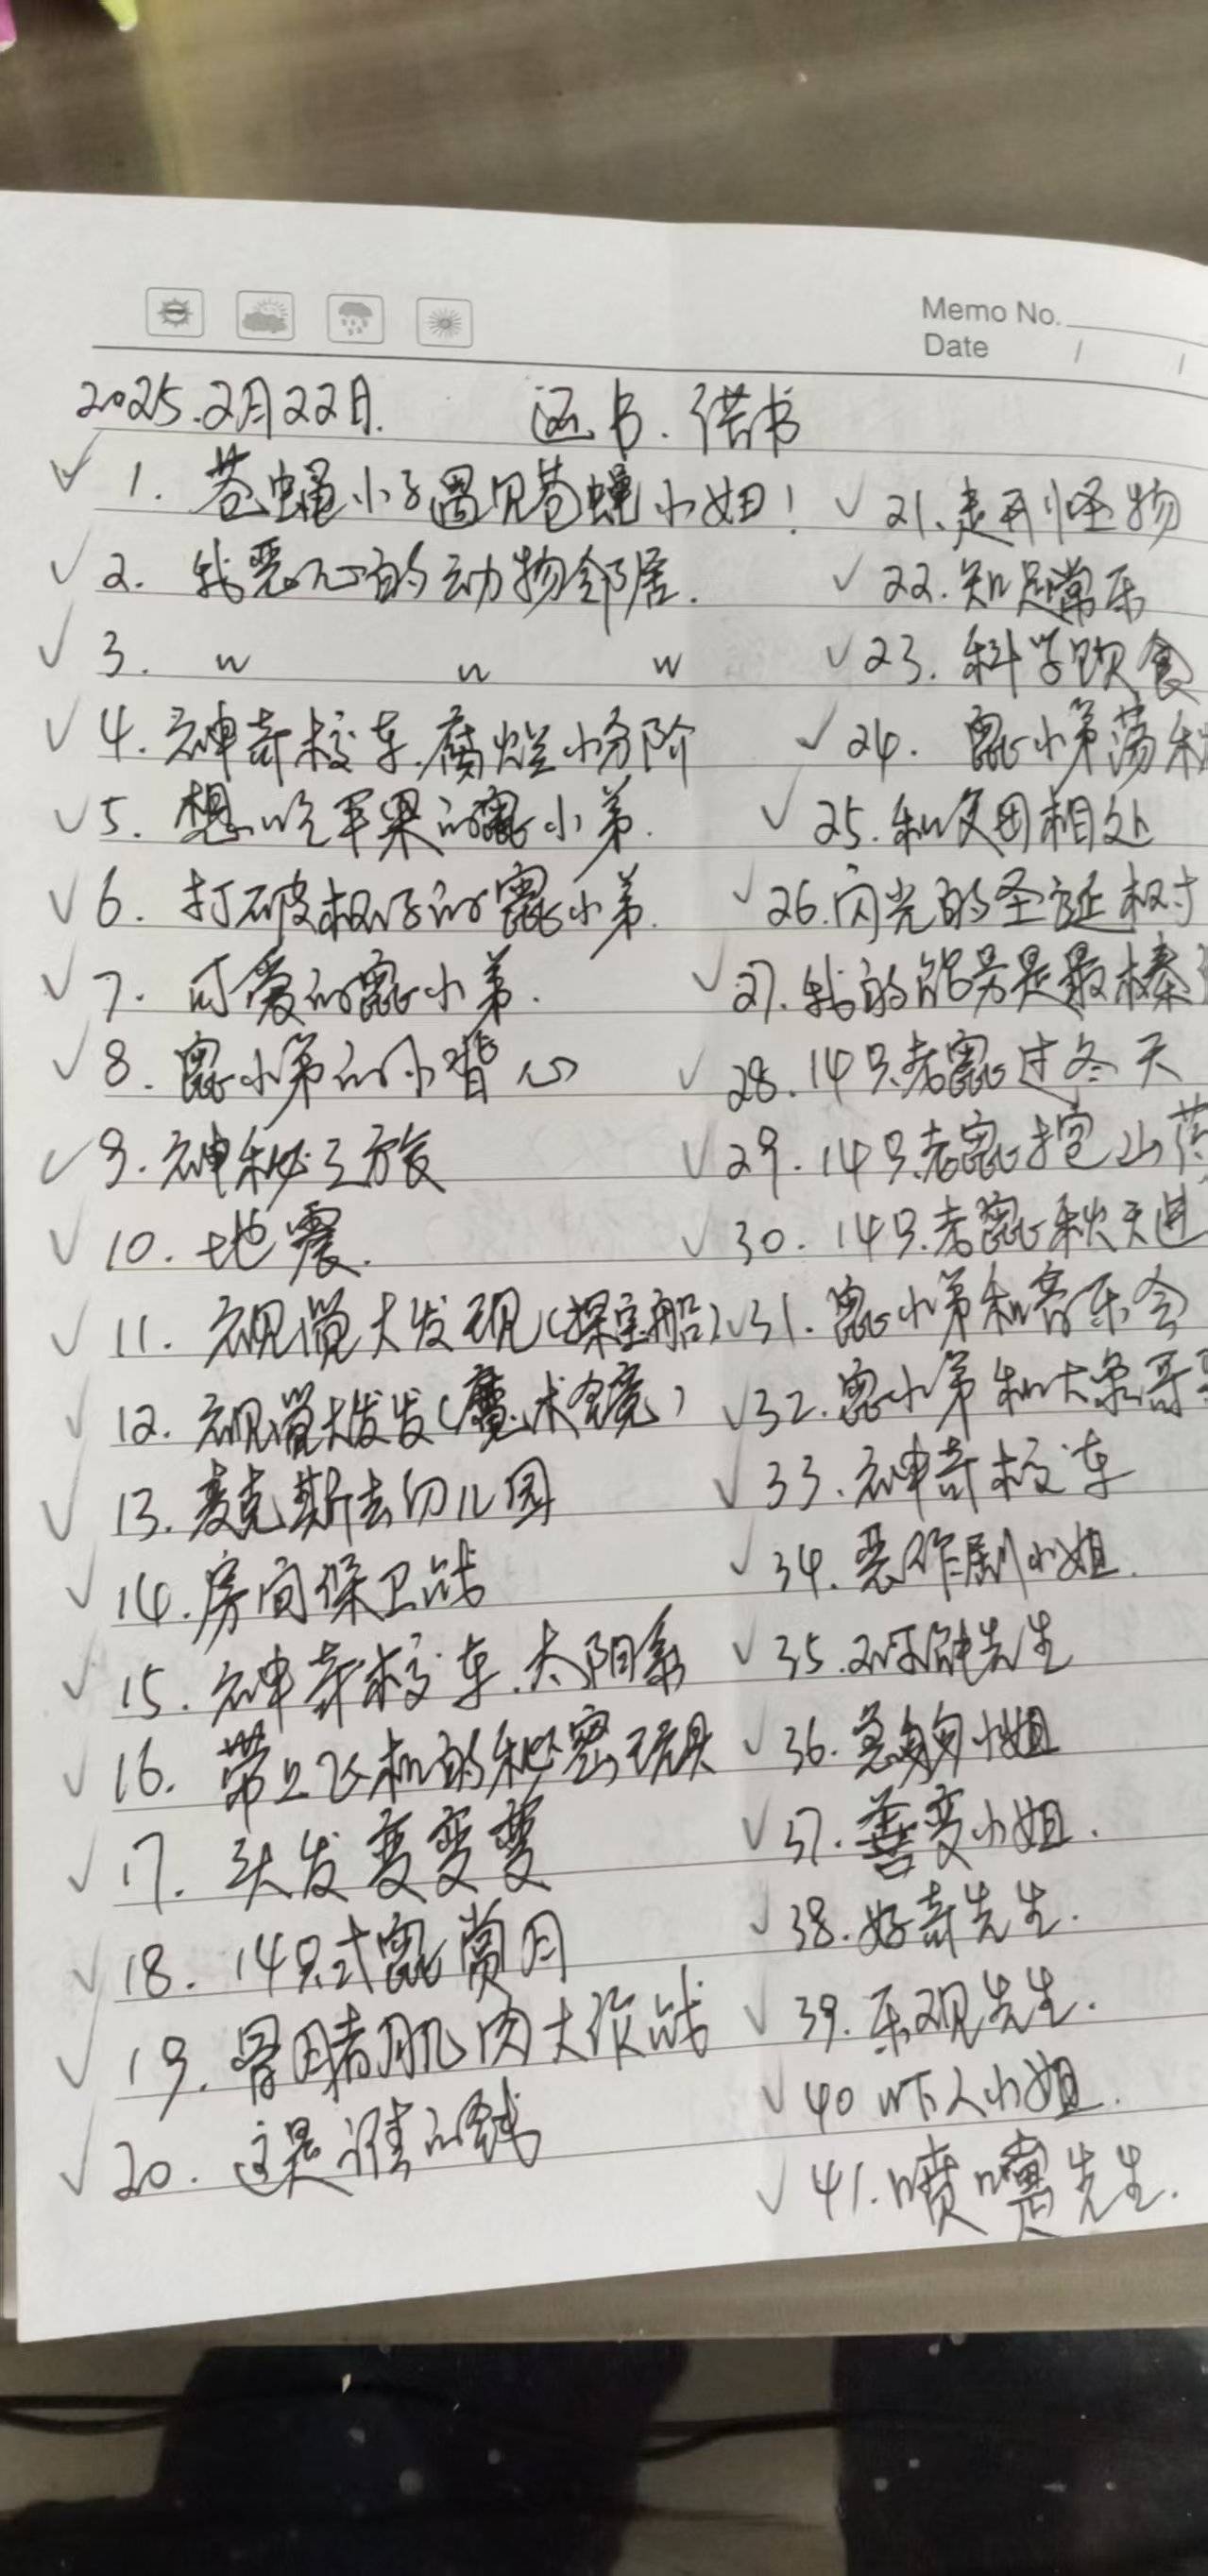 Memo No.
Date / /
2025.2月22日. 还书.借书
1. 苍蝇小子遇见苍蝇小妞!
2. 我恶心的动物邻居.
3. 〃 〃 〃
4. 神奇校车.腐烂小分阶
5. 想吃苹果的鼠小弟.
6. 打破杯子的鼠小弟.
7. 可爱的鼠小弟.
8. 鼠小弟的小背心
9. 神秘之旅
10. 地震.
11. 视觉大发现(探宝船)
12. 视觉大发发(魔术镜)
13. 麦克斯去幼儿园
14. 房间保卫战
15. 神奇校车.太阳系
16. 带上飞机的秘密玩具
17. 头发变变变
18. 14只老鼠赏月
19. 骨头肌肉大作战
20. 这是谁的钱
21. 走开怪物
22. 知足常乐
23. 科学饮食
24. 鼠小弟荡秋
25. 和父母相处
26. 闪光的圣诞树
27. 我的能男是最棒
28. 14只老鼠过冬天
29. 14只老鼠挖山药
30. 14只老鼠秋天进
31. 鼠小弟和音乐会
32. 鼠小弟和大象哥哥
33. 神奇校车
34. 恶作剧小姐.
35. 先生
36. 急匆匆小姐
37. 善变小姐.
38. 好奇先生.
39. 乐观先生.
40 吓人小姐.
41. 喷嚏先生.